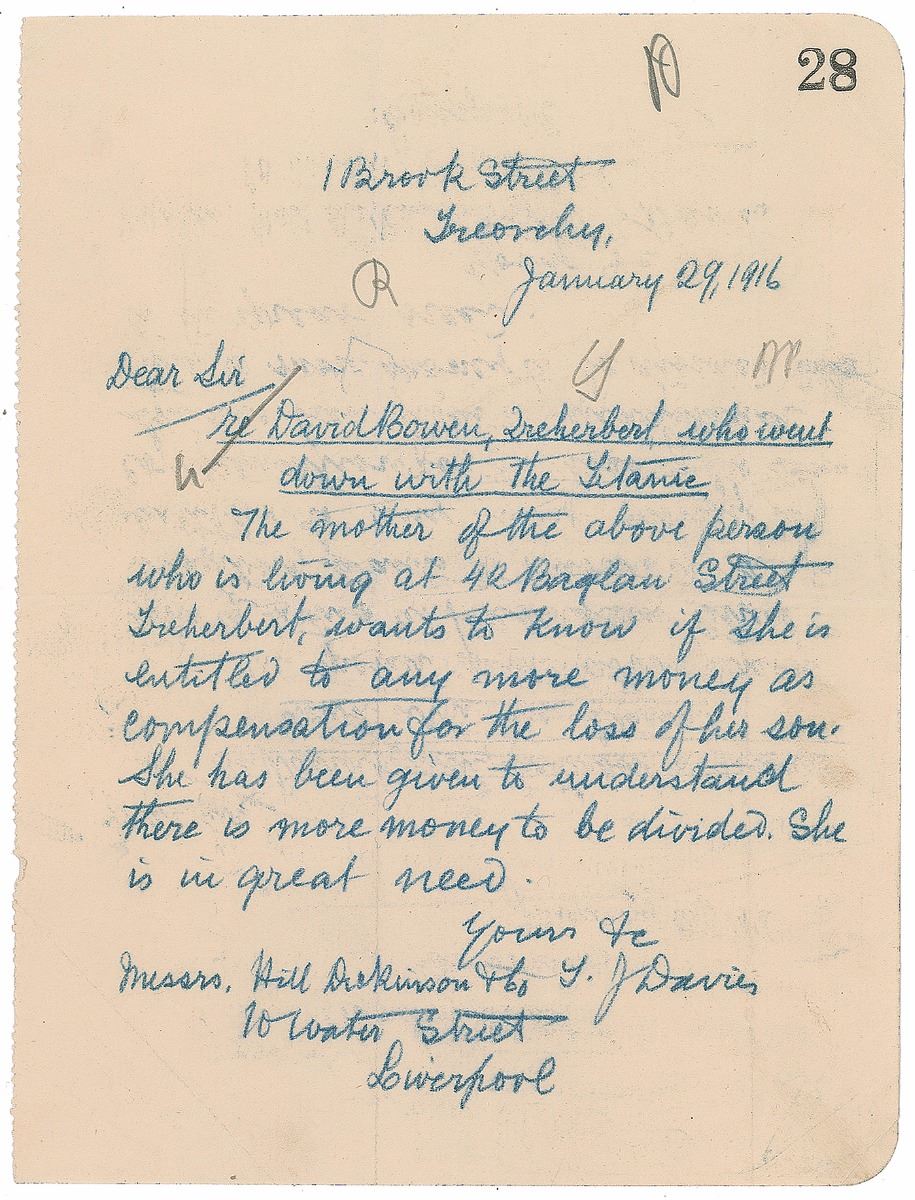 28
1 Brook Street
Treorchy,
January 29, 1916
R
Y
Dear Sir
re David Bowen, Treherbert who went
down with the Titanic
The mother of the above person
who is living at 42 Baglan Street
Treherbert, wants to know if She is
entitled to any more money as
compensation for the loss of her son.
She has been given to understand
there is more money to be divided. She
is in great need.
Yours &c
Messrs. Hill Dickinson & Co T. J Davies
10 Water Street
Liverpool